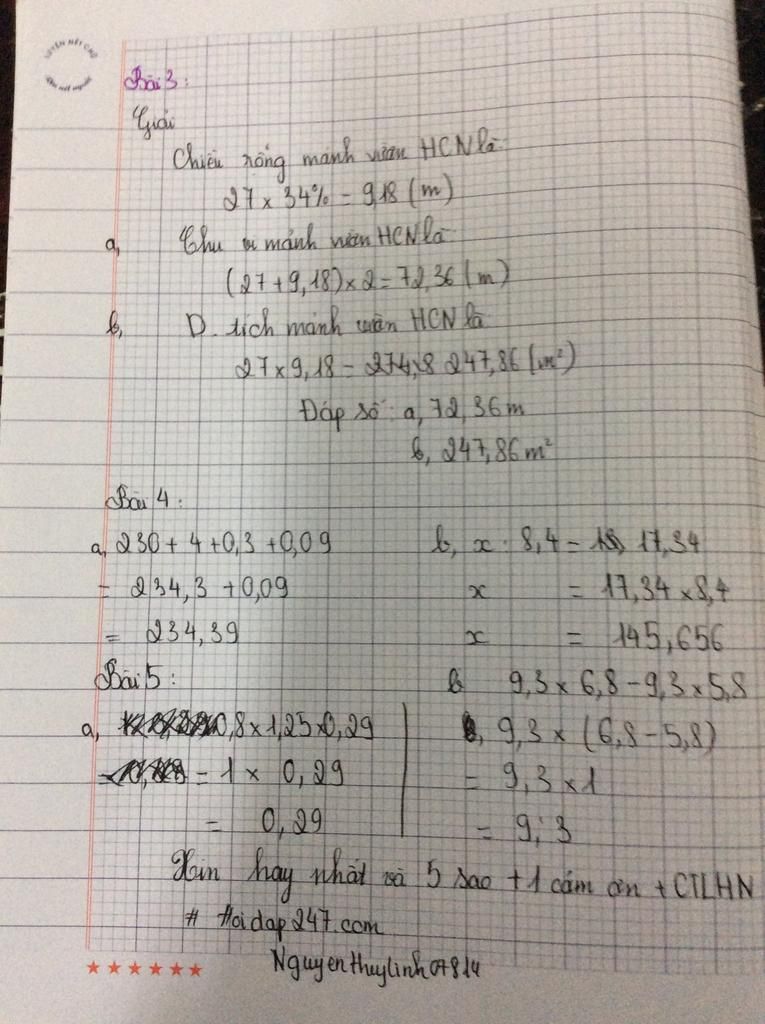 LUYỆN NÉT CHỮ
Rèn nết người
Bài 3:
Giải
Chiều rộng mảnh vườn HCN là:
27 x 34% = 9,18 (m)
a, Chu vi mảnh vườn HCN là
(27 + 9,18) x 2 = 72,36 (m)
b, D. tích mảnh vườn HCN là
27 x 9,18 = 247,86 (m²)
Đáp số: a, 72,36 m
b, 247,86 m²
Bài 4:
a, 230 + 4 + 0,3 + 0,09
= 234,3 + 0,09
= 234,39
b, x : 8,4 = 17,34
x = 17,34 x 8,4
x = 145,656
Bài 5:
a, 0,8 x 1,25 x 0,29
= 1 x 0,29
= 0,29
b 9,3 x 6,8 - 9,3 x 5,8
9,3 x (6,8 - 5,8)
= 9,3 x 1
= 9,3
Xin hay nhất và 5 sao + 1 cảm ơn + CTLHN
# Hoidap247.com
Nguyenthuylinh07814